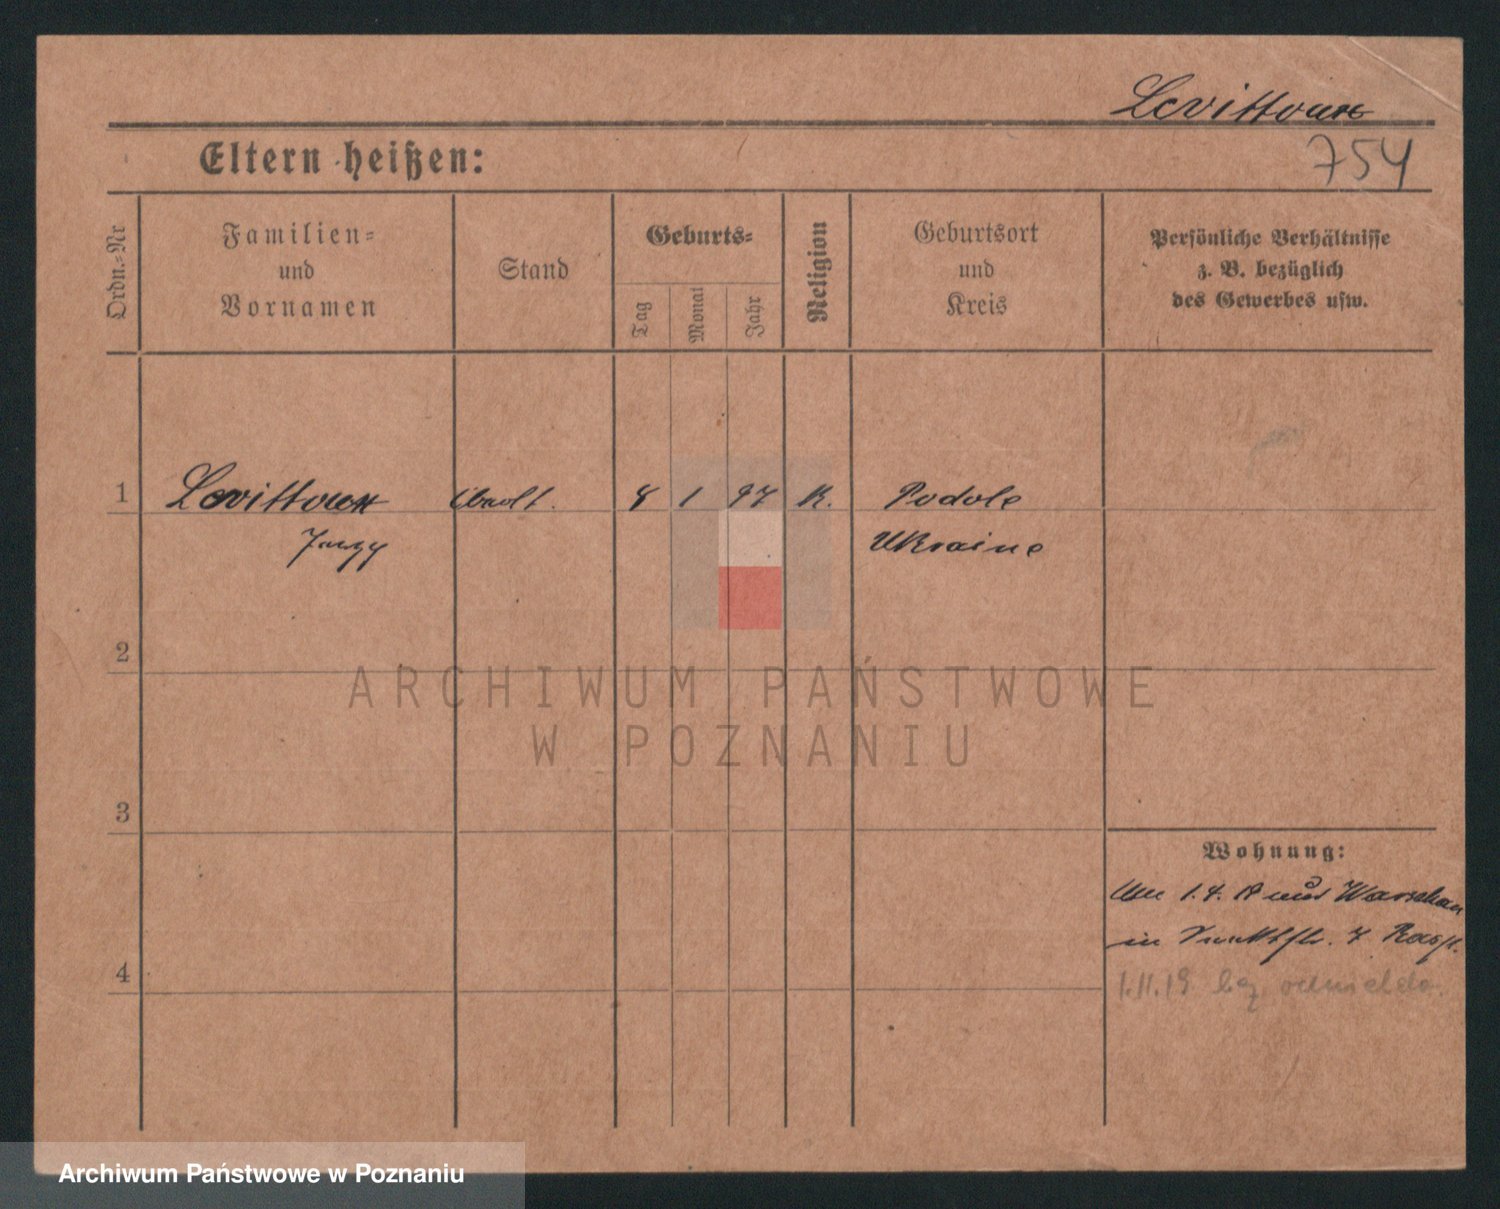 Levittoux
754
Eltern heißen:
Ordn.-Nr
Familien-
und
Vornamen
Stand
Geburts-
Tag
Monat
Jahr
Religion
Geburtsort
und
Kreis
Persönliche Verhältnisse
z. B. bezüglich
des Gewerbes usw.
1 Levittoux 8 1 97 K. Podole
Ukraine
2
3
4
Wohnung:
1.4. 19 Warschau
in 7
1.11.19 bez odmeldo.
ARCHIWUM PAŃSTWOWE
W POZNANIU
Archiwum Państwowe w Poznaniu